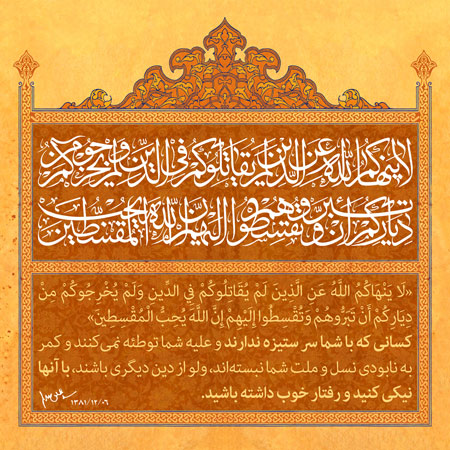 لا ينهاكم الله عن الذين لم يقاتلوكم في الدين ولم يخرجوكم من
دياركم أن تبروهم وتقسطوا إليهم إن الله يحب المقسطين
«لَا يَنْهَاكُمُ اللَّهُ عَنِ الَّذِينَ لَمْ يُقَاتِلُوكُمْ فِي الدِّينِ وَلَمْ يُخْرِجُوكُمْ مِنْ
دِيَارِكُمْ أَنْ تَبَرُّوهُمْ وَتُقْسِطُوا إِلَيْهِمْ إِنَّ اللَّهَ يُحِبُّ الْمُقْسِطِينَ»
کسانی که با شما سر ستیزه ندارند و علیه شما توطئه نمی‌کنند و کمر
به نابودی نسل و ملت شما نبسته‌اند، ولو از دین دیگری باشند، با آنها
نیکی کنید و رفتار خوب داشته باشید.
۱۳۸۱/۱۲/۰۶